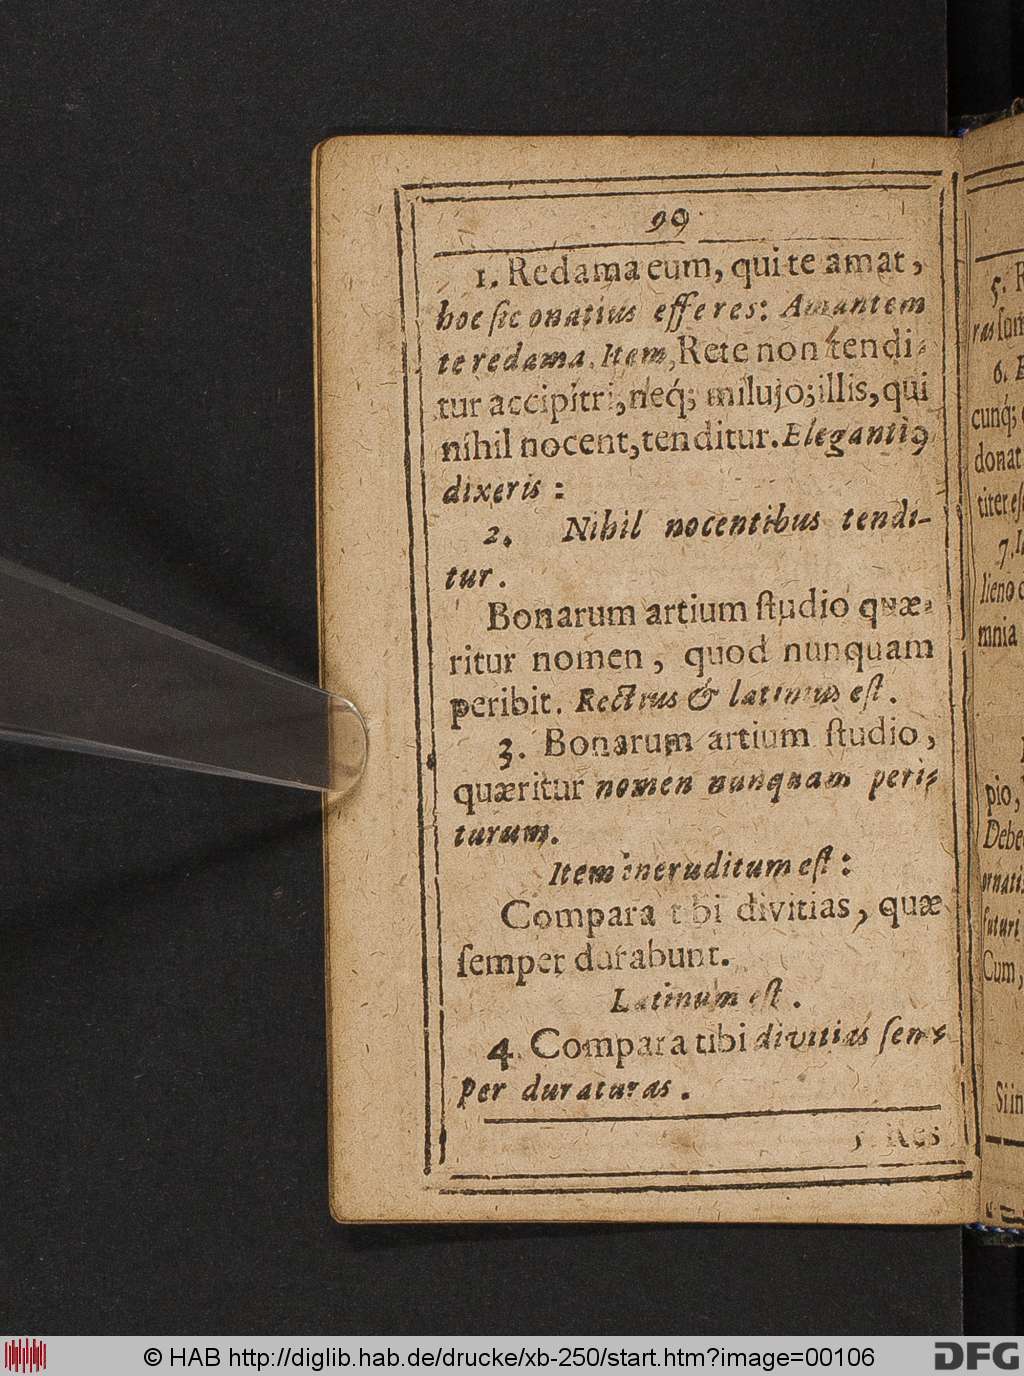 99
1. Redama eum, qui te amat,
hoc ſic onatius efferes: Amantem
te redama. Item, Rete non tendi-
tur accipitri, neq́; milujo; illis, qui
nihil nocent, tenditur. Elegantiꝰ
dixeris :
2. Nihil nocentibus tendi-
tur.
Bonarum artium ſtudio quæ-
ritur nomen, quod nunquam
peribit. Rectius & latinius eſt.
3. Bonarum artium ſtudio,
quæritur nomen nunquam peri-
turum.
Item ineruditum eſt :
Compara tibi divitias, quæ
ſemper durabunt.
Latinum eſt.
4. Compara tibi divitias ſem-
per duraturas.
5. Res
5.
ras
6.
cunq́;
donat
titer eſ
7.
lieno
mnia
pio,
Debe
ornati
futuri
Cum,
Si in
© HAB http://diglib.hab.de/drucke/xb-250/start.htm?image=00106
DFG